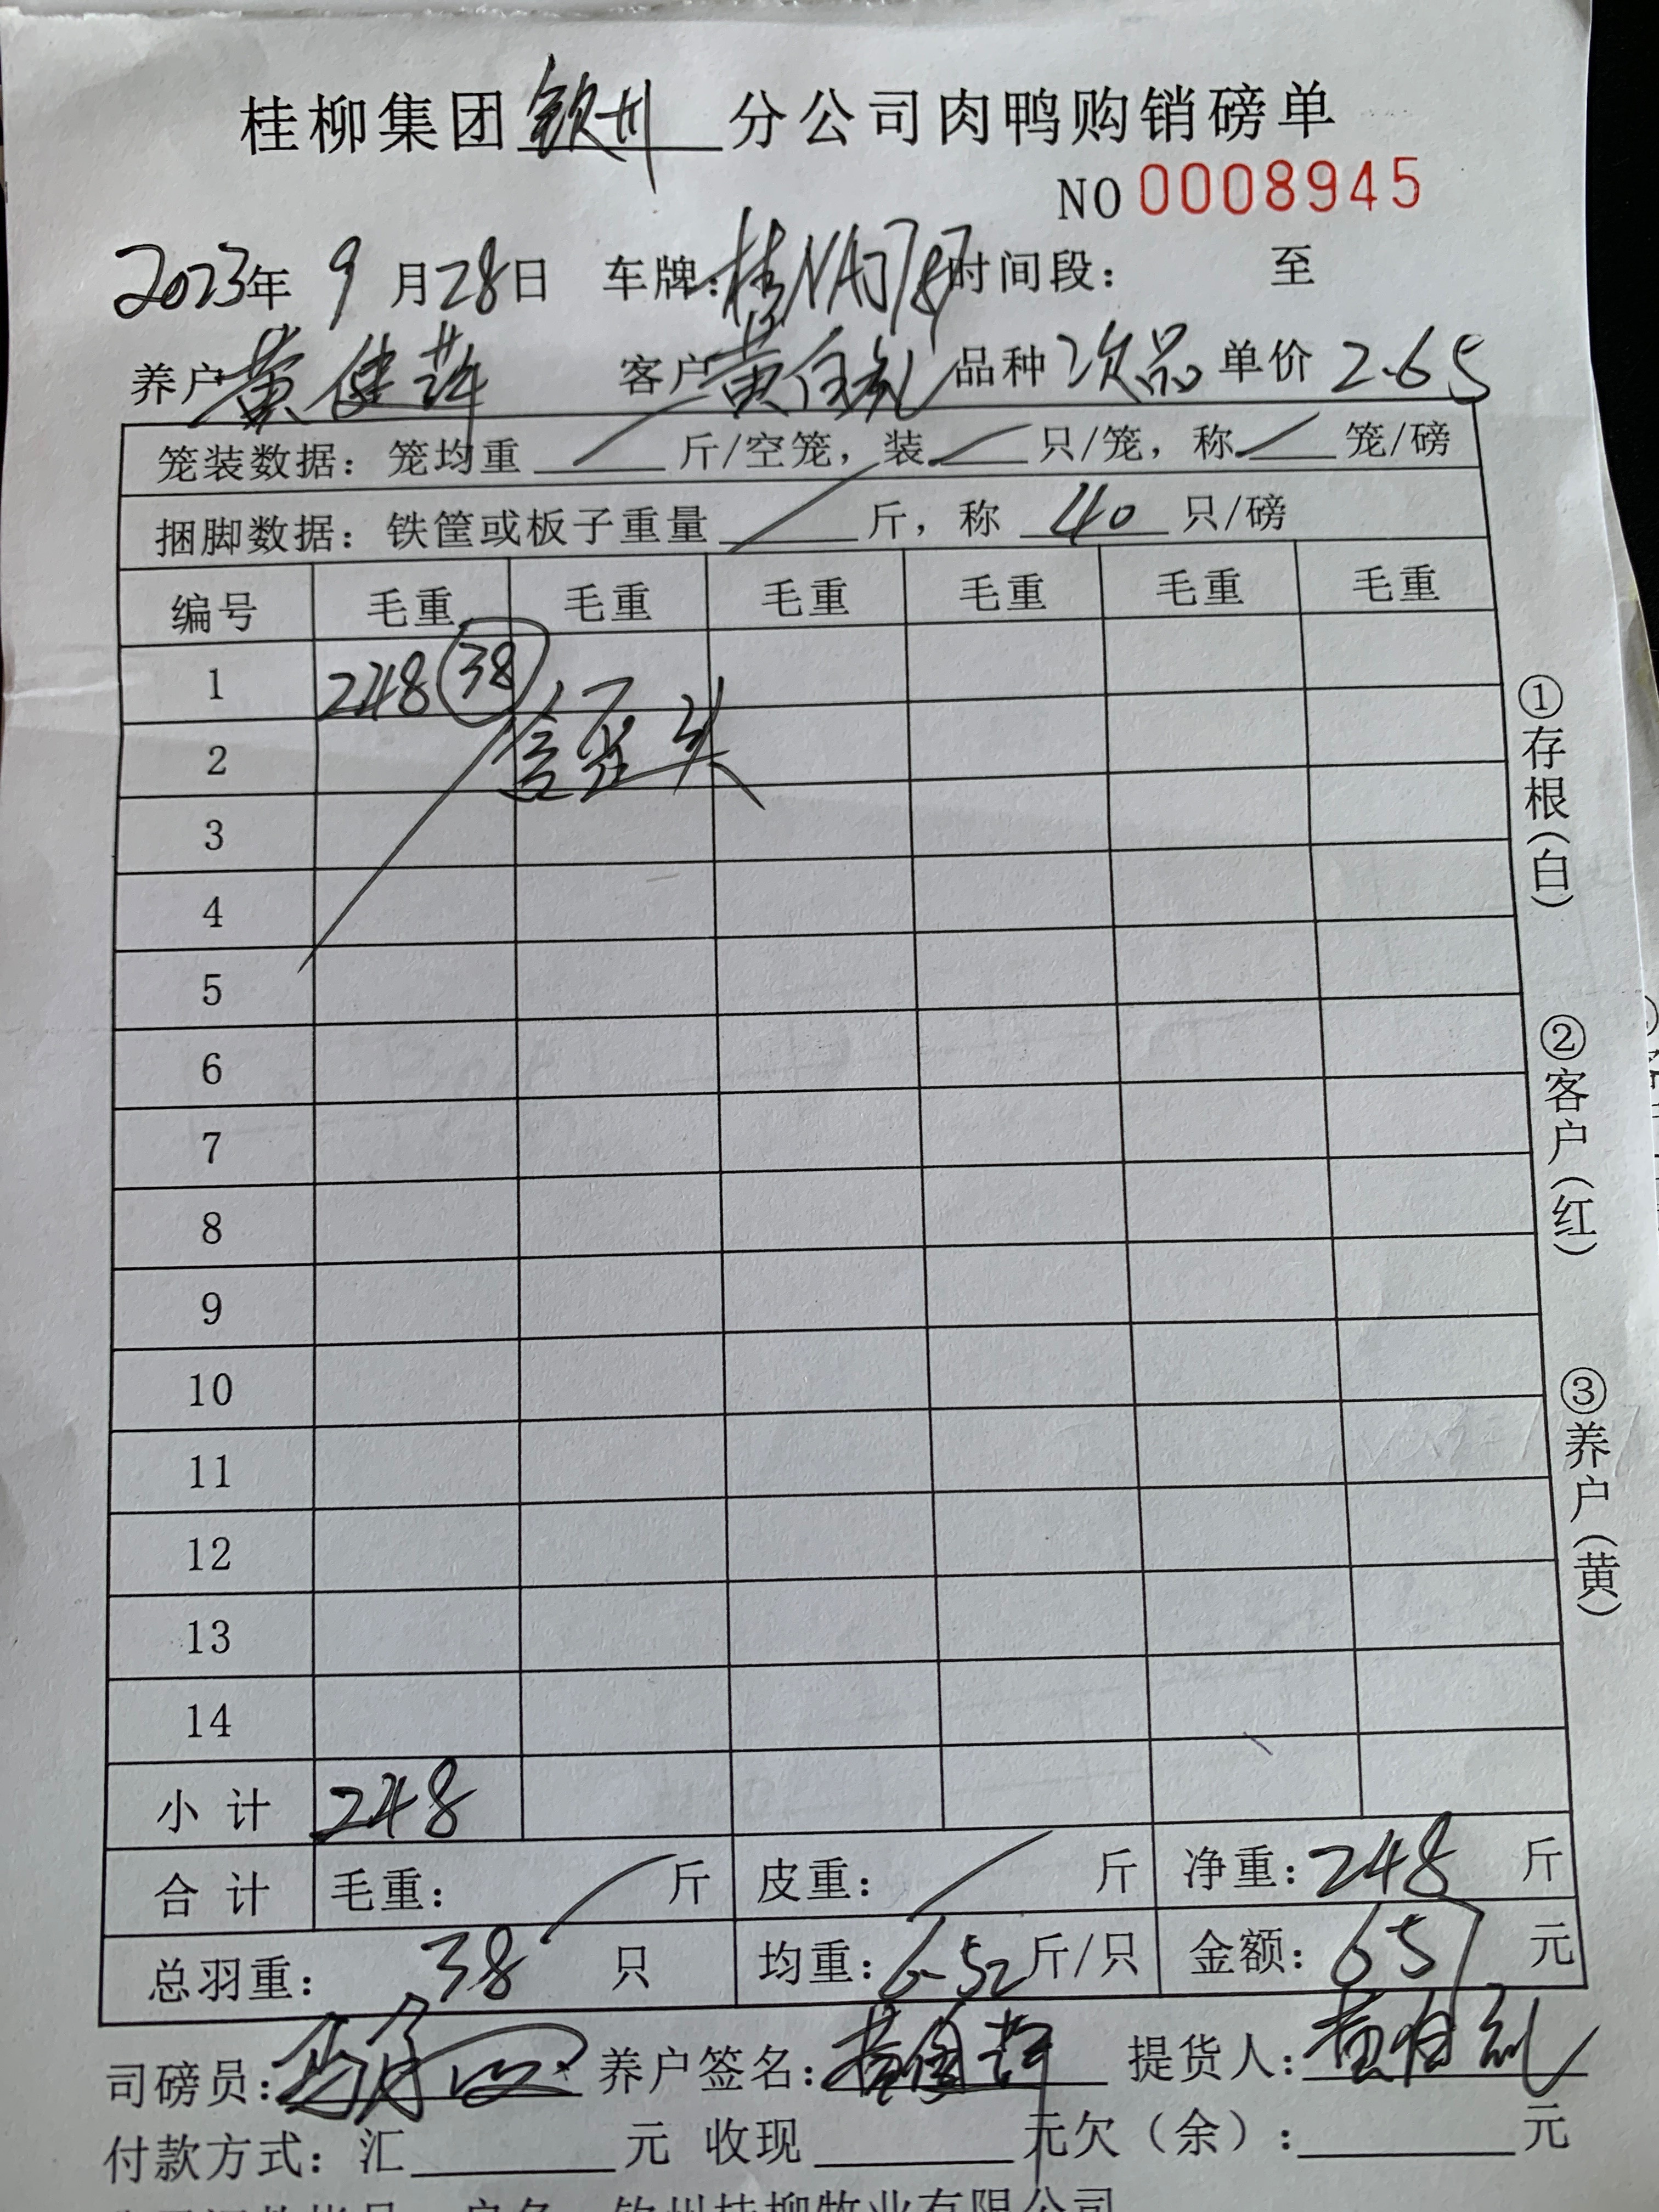 桂柳集团钦州分公司肉鸭购销磅单
NO 0008945
2023年 9月28日 车牌:桂NA 时间段: 至
养户 黄健萍 客户 黄 品种 次品 单价 2.65
笼装数据: 笼均重 / 斤/空笼, 装 / 只/笼, 称 / 笼/磅
捆脚数据: 铁筐或板子重量 / 斤, 称 40 只/磅
编号 毛重 毛重 毛重 毛重 毛重 毛重
1 248 (38)
2 含歪头
3
4
5
6
7
8
9
10
11
12
13
14
小计 248
合计 毛重: / 斤 皮重: / 斤 净重: 248 斤
总羽重: 38 只 均重: 6.52 斤/只 金额: 657 元
司磅员: 养户签名: 黄健萍 提货人: 黄
付款方式: 汇______元 收现______元欠(余):______元
户名: 钦州桂柳牧业有限公司
①存根(白)
②客户(红)
③养户(黄)